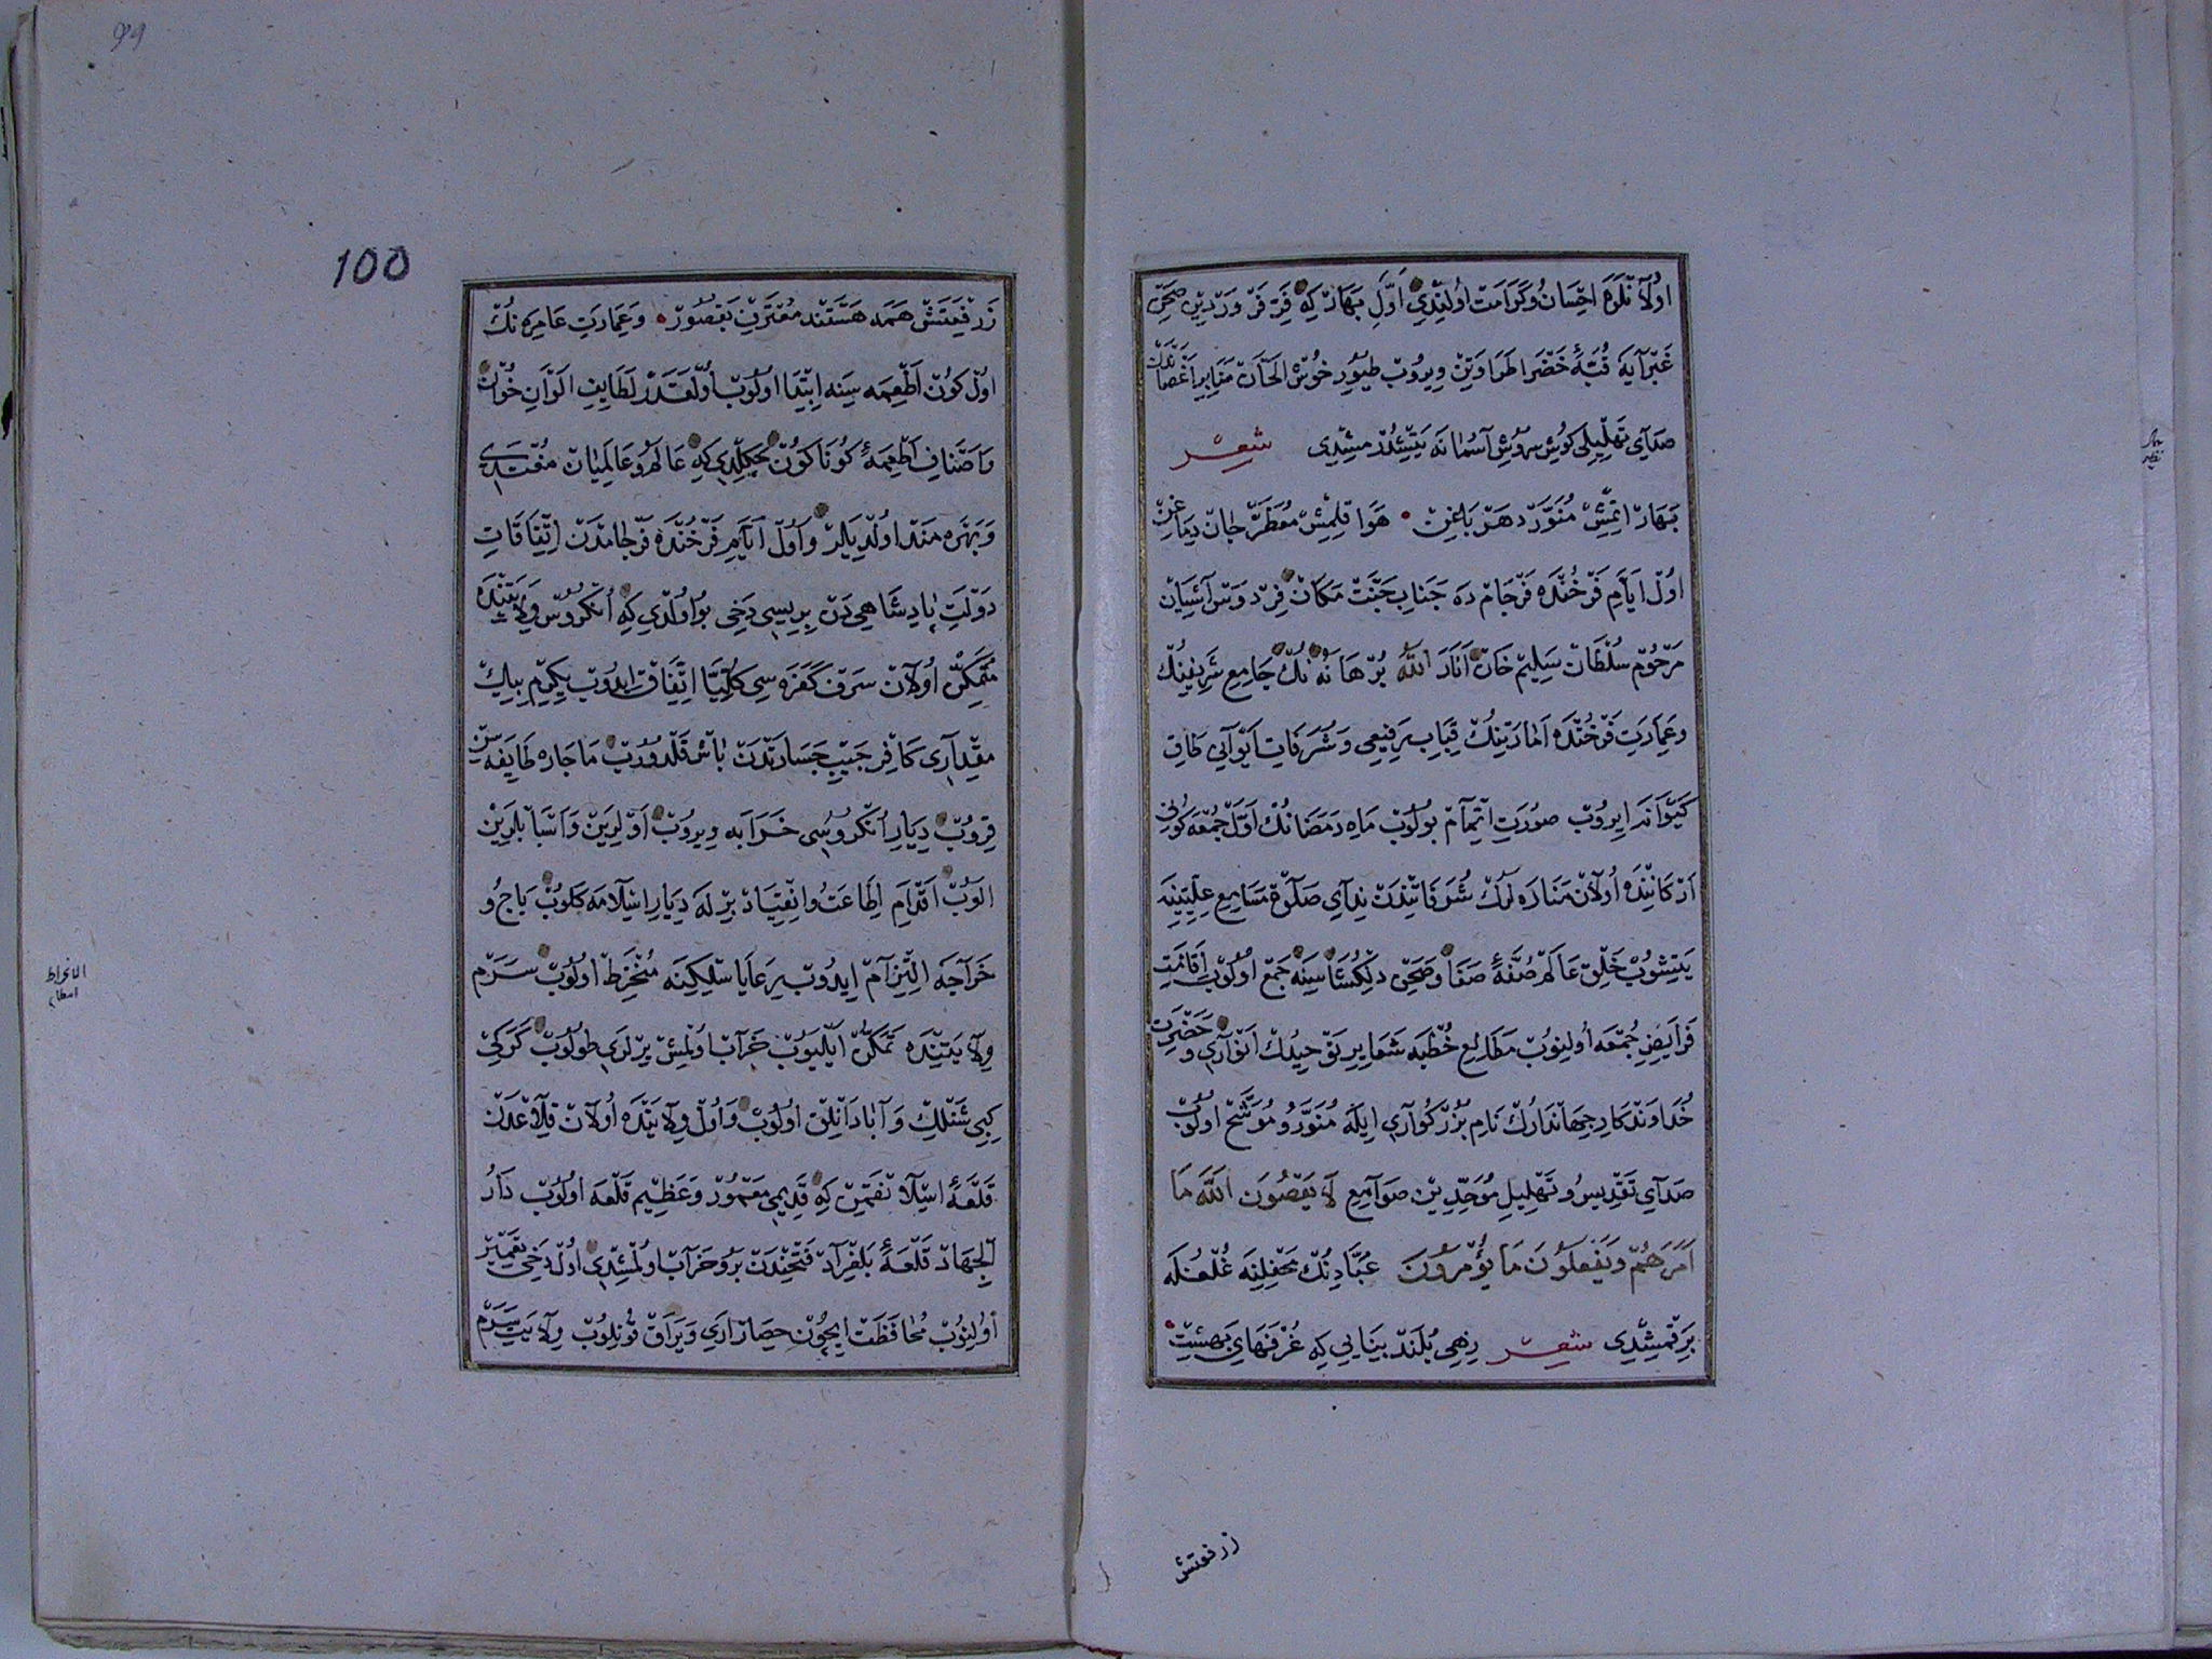 اولانلره احسان و كرامت اولندى اول بهار كه فر فروردين صحن
غبرايه قبهٔ خضرا طراوتين ويروب طيور خوش الحان منابر اغصاندن
صداى تهليلى كوش سروش آسمانه يتشدرمشدى شعر
بهار اتمش منور دهر باغن هوا قلمش معطر جان دماغن
اول ايام فرخنده فرجام ده جناب جنت مكان فردوس آشيان
مرحوم سلطان سليم خان انار الله برهانه نك جامع شريفينك
و عمارت فرخنده اماراتينك قباب رفيعى و شرفات ايوانى طاق
كيوانه ايروب صورت اتمام بولوب ماه رمضانك اول جمعه كونى
اركاننده اولان مناره لرك شرفاتندن نداى صلوة مسامع عليينه
يتشوب خلق عالم صفهٔ صفا و صحن دلكشاسنه جمع اولوب اقامت
فرايض جمعه اولنوب مطالع خطبه شعاير توحيدك انوارى و حضرت
خداوندكار جهاندارك نام بزركوارى ايله منور و موشح اولوب
صداى تقديس و تهليل موحدين صوامع لا يعصون الله ما
امرهم ويفعلون ما يؤمرون عبادنك محفلينه غلغله
برقمشدى شعر زهى بلند بنايى كه غرفهاى بهشت
ز رفعتش
100
99
ز رفعتش همه هستند معترف بقصور و عمارت عامره نك
اول كون اطعمه سينه ابتدا اولوب اولقدر لطايف الوان خوان
و اصناف اطعمهٔ كوناكون چكلدى كه عالم و عالميان مغتدى
و بهره مند اولديلر و اول ايام فرخنده فرجامدن اتفاقات
دولت پادشاهى دن بريسى دخى بو اولدى كه انكروس ولايتنده
متمكن اولان سرف كفره سى كليا اتفاق ايدوب يكرمى بيك
مقدارى كافر جيب جسارتدن باش قلدوروب ماجاره طايفه سن
قروب ديار انكروسى خرابه ويروب اولرين و اسبابلرين
الوب اقدام اطاعت و انقياد برله ديار اسلامه كلوب باج و
خراجه التزام ايدوب رعايا سلكينه منخرط اولوب سرم
ولايتنده تمكن ايليوب خراب اولمش يرلرى طولوب كركى
كبى شنلك و آبادانلق اولوب و اول ولايتده اولان قلاعدن
قلعهٔ اسلانقمن كه قديمى معمور و عظيم قلعه اولوب دار
الجهاد قلعهٔ بلغراد فتحندن برو خراب اولمشدى اول دخى تعمير
اولنوب محافظت ايچون حصار ارى و يراق قونلوب ولايت سرم
الانخراط